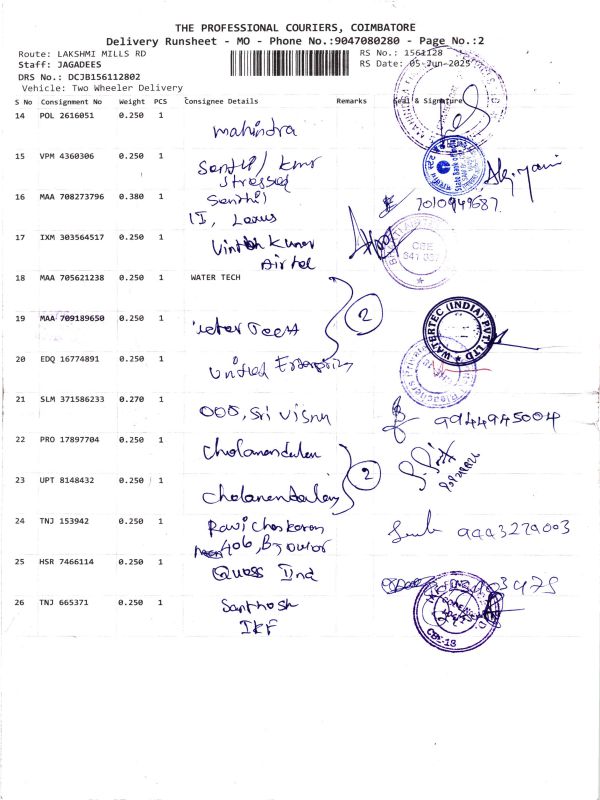 THE PROFESSIONAL COURIERS, COIMBATORE
Delivery Runsheet - MO - Phone No.:9047080280 - Page No.:2
Route: LAKSHMI MILLS RD
RS No.: 1561128
Staff: JAGADEES
RS Date: 05-Jun-2025
DRS No.: DCJB156112802
Vehicle: Two Wheeler Delivery
S No Consignment No Weight PCS Consignee Details Remarks Seal & Signature
14 POL 2616051 0.250 1
mahindra
15 VPM 4360306 0.250 1
Senthil kmr
Stressed
State Bank of India
16 MAA 708273796 0.380 1
Senthil
IT, Lexus
7010949687
17 IXM 303564517 0.250 1
Vinoth Kumar
Airtel
CBE
641 037
18 MAA 705621238 0.250 1 WATER TECH
2
19 MAA 709189650 0.250 1
water Tech
WATERTEC (INDIA) PVT LTD
20 EDQ 16774891 0.250 1
Unified Enterprises
21 SLM 371586233 0.270 1
OOO, Sri Visnu
9944945004
22 PRO 17897704 0.250 1
Cholamandalam
2
23 UPT 8148432 0.250 1
Cholamandalam
24 TNJ 153942 0.250 1
Ravi Chaskaran
406, B Tower
9993279003
25 HSR 7466114 0.250 1
Quess Ind
26 TNJ 665371 0.250 1
Santhosh
IKF
CBE-18